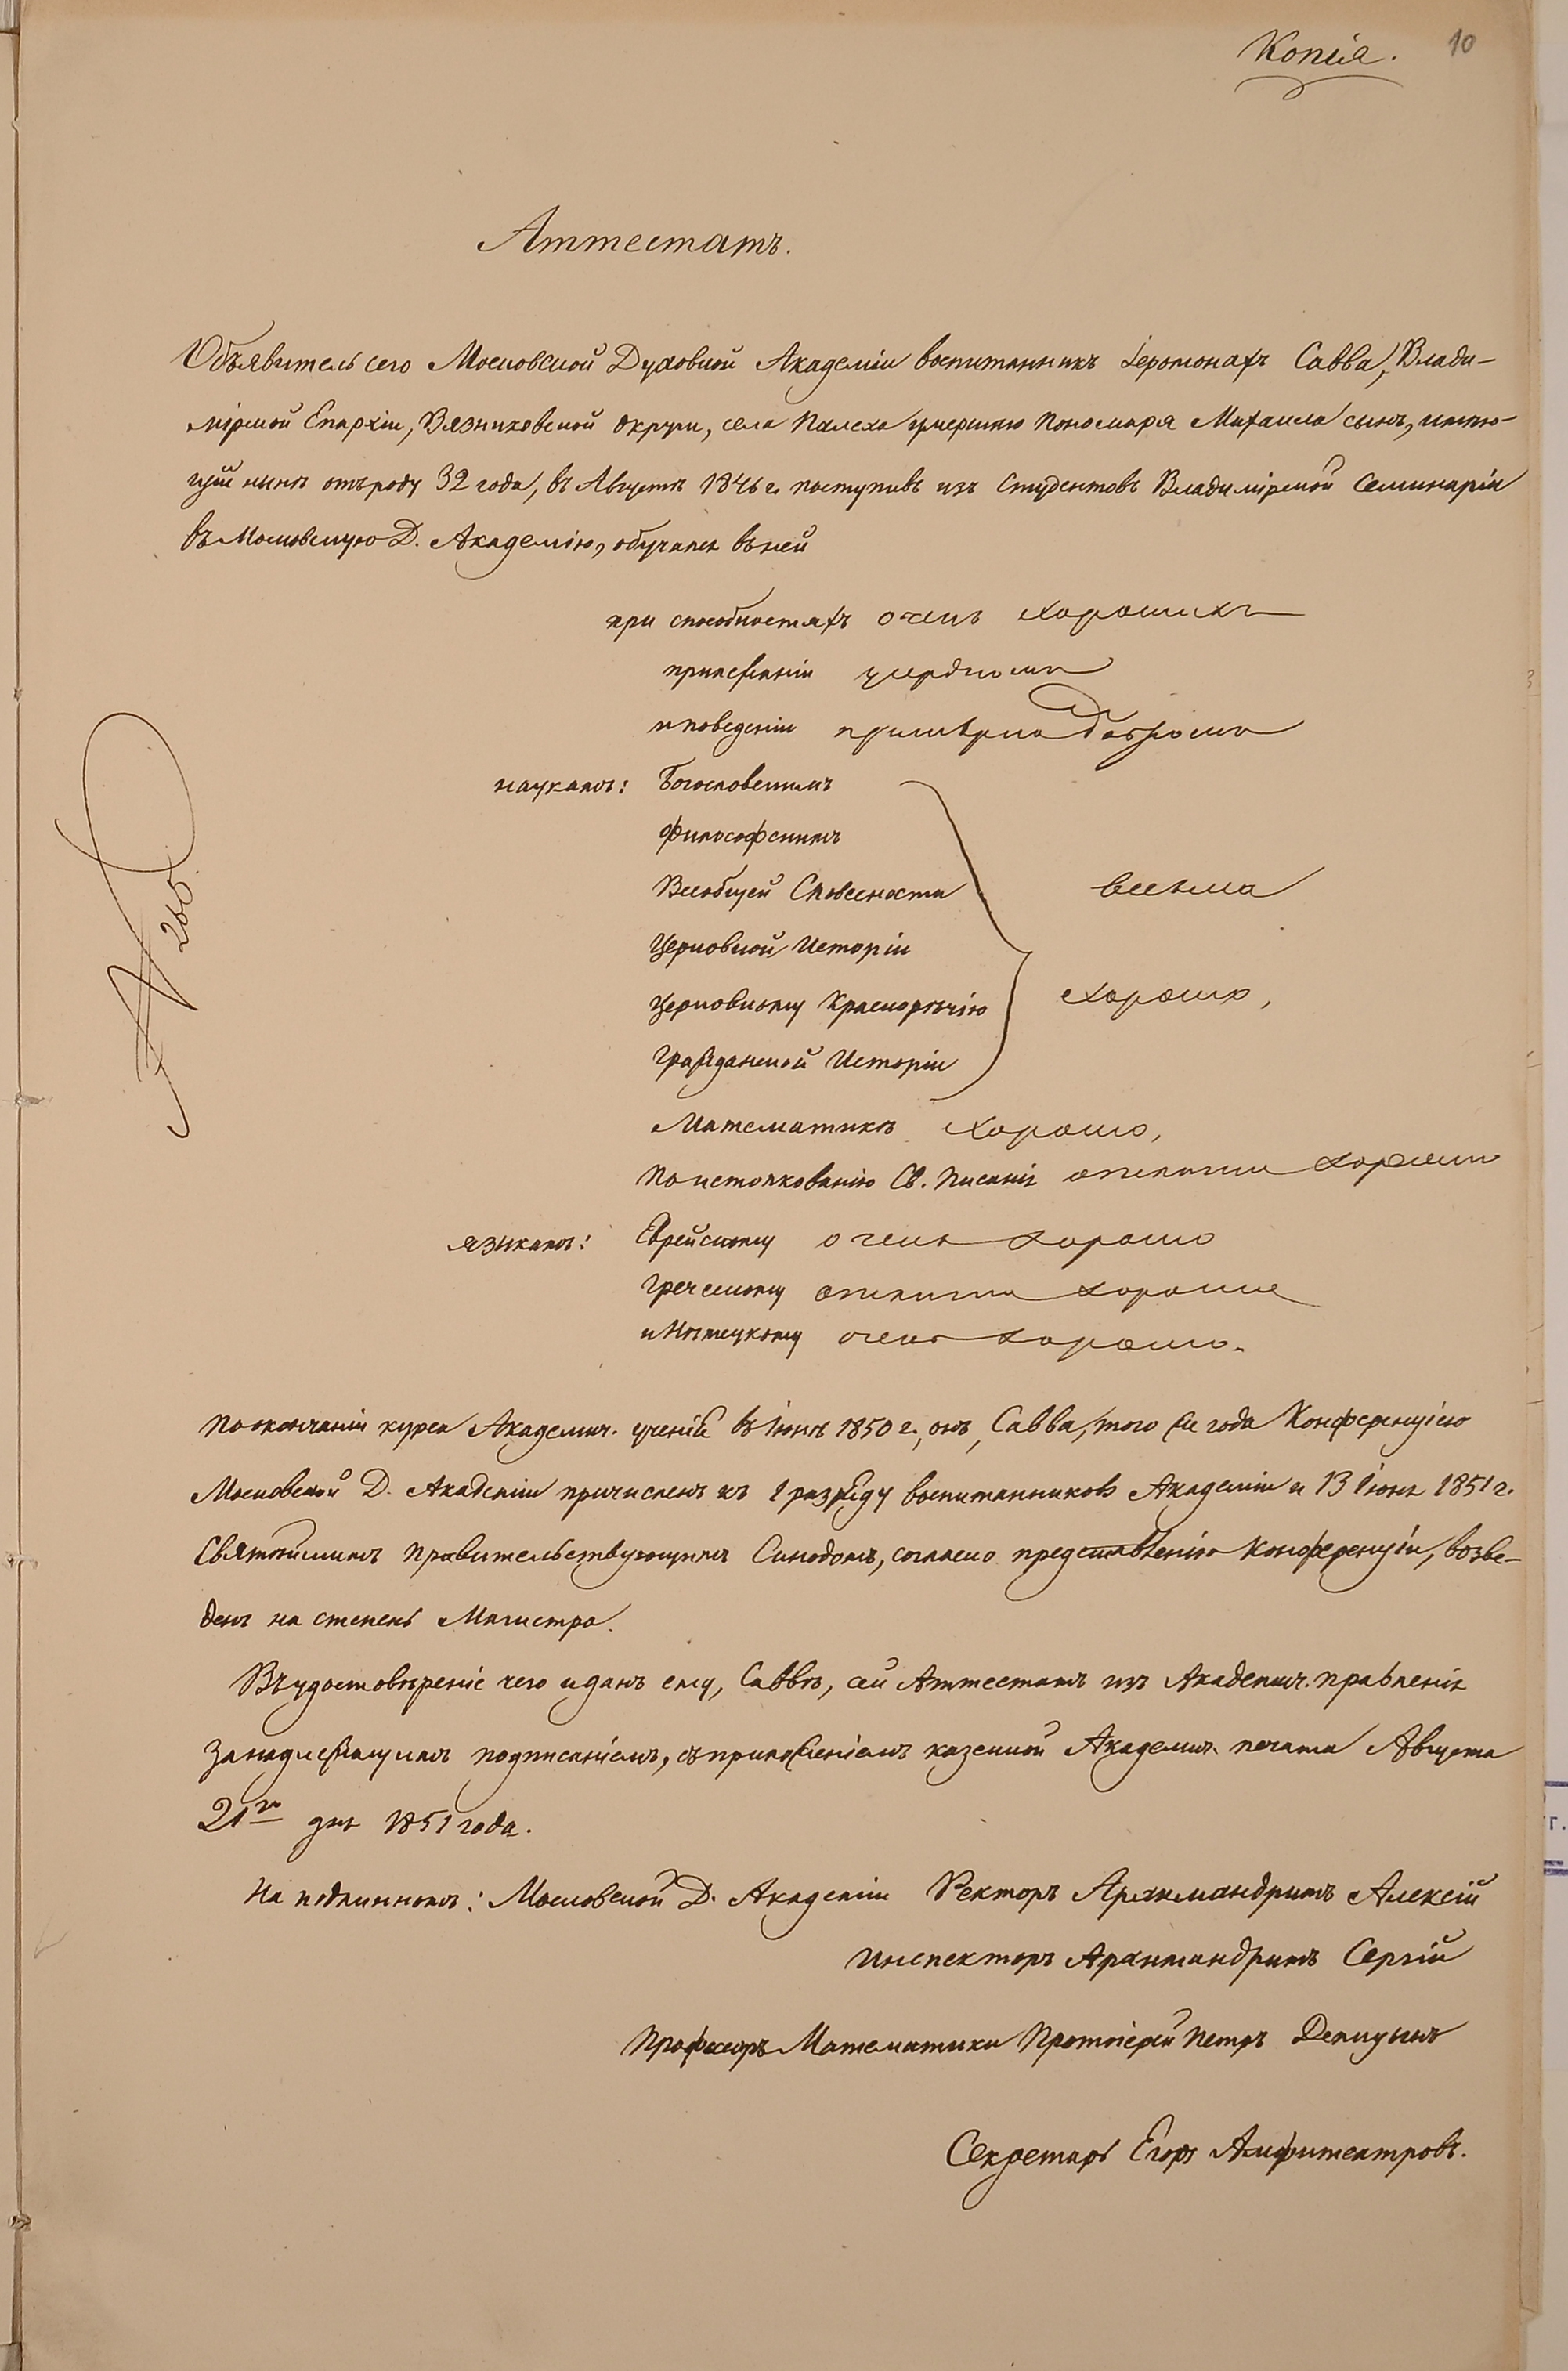 Копія. 10
Аттестатъ.
Объявитель сего Московской Духовной Академіи воспитанникъ Іеромонахъ Савва, Влади-
мірской Епархіи, Вязниковской округи, села Палеха умершаго Пономаря Михаила сынъ, имѣю-
щій нынѣ отъ роду 32 года, въ Августѣ 1846 г. поступивъ изъ Студентовъ Владимірской Семинаріи
въ Московскую Д. Академію, обучался въ ней
при способностяхъ очень хорошихъ
прилежаніи усердномъ
и поведеніи примѣрно добромъ
наукамъ: Богословскимъ
Философскимъ
Всеобщей Словесности
весьма
Церковной Исторіи
Церковному Краснорѣчію
хорошо,
Гражданской Исторіи
Математикѣ хорошо,
По истолкованію Св. Писанія отлично хорошо
языкамъ: Еврейскому очень хорошо
Греческому отлично хорошо
и Нѣмецкому очень хорошо.
№ 265.
По окончаніи курса Академич. ученія въ Іюнѣ 1850 г., онъ, Савва, того же года Конференціею
Московской Д. Академіи причисленъ къ 1 разряду воспитанниковъ Академіи и 13 Іюня 1851 г.
Святѣйшимъ Правительствующимъ Синодомъ, согласно представленію Конференціи, возве-
денъ на степень Магистра.
Въ удостовѣреніе чего и данъ ему, Саввѣ, сей Аттестатъ изъ Академич. Правленія
за надлежащимъ подписаніемъ, съ приложеніемъ казенной Академич. печати Августа
21го дня 1851 года.
На подлинномъ: Московской Д. Академіи Ректоръ Архимандритъ Алексій
Инспекторъ Архимандритъ Сергій
Професоръ Математики Протоіерей Петръ Делицынъ
Секретарь Егоръ Амфитеатровъ.